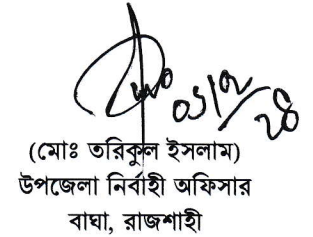 (মোঃ তরিকুল ইসলাম)
উপজেলা নির্বাহী অফিসার
বাঘা, রাজশাহী